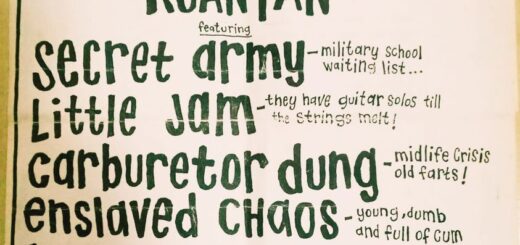 KUANTAN
featuring
secret army – military school
waiting list...
Little Jam – they have guitar solos till
the strings melt!
carburetor dung – midlife crisis
old farts!
enslaved CHAOS – young, dumb
and full of cum